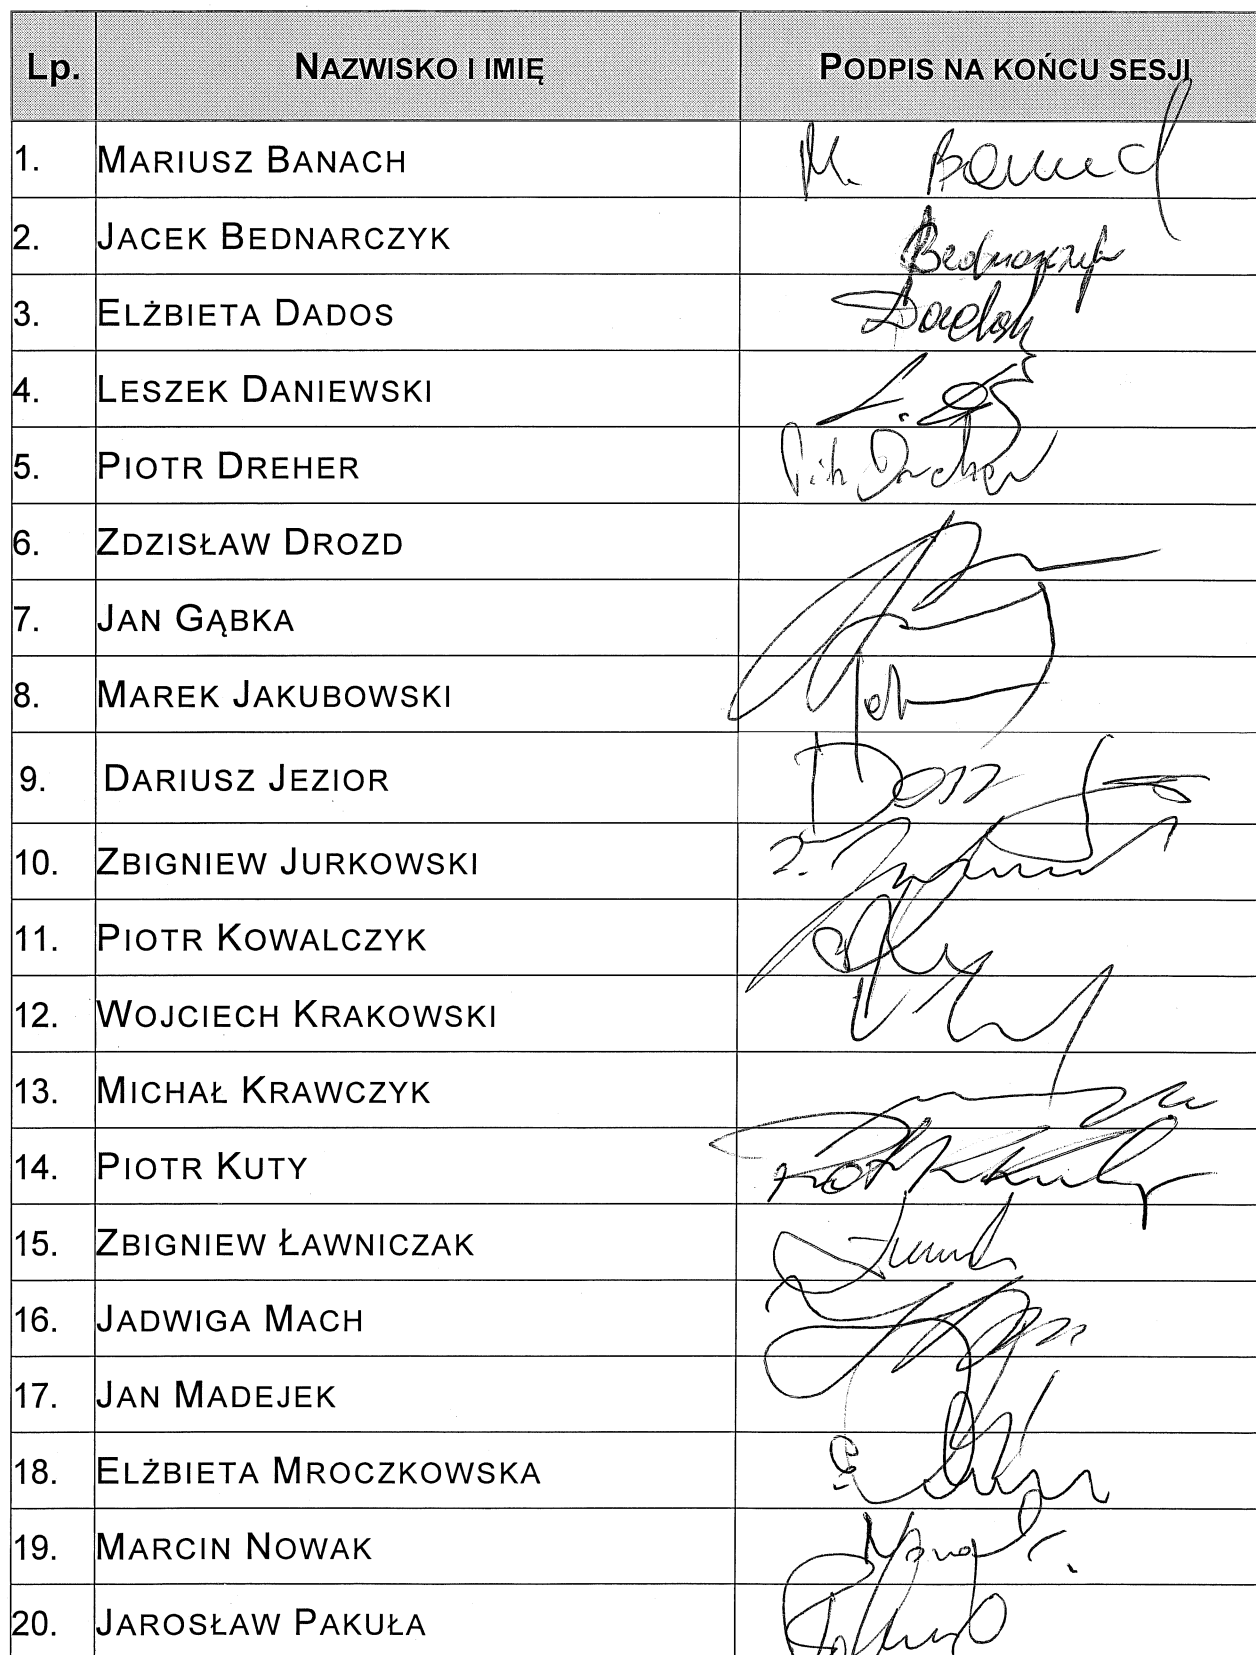 Lp. NAZWISKO I IMIĘ PODPIS NA KOŃCU SESJI
1. MARIUSZ BANACH M. Banach
2. JACEK BEDNARCZYK Bednarczyk
3. ELŻBIETA DADOS Dados
4. LESZEK DANIEWSKI L.
5. PIOTR DREHER Piotr Dreher
6. ZDZISŁAW DROZD
7. JAN GĄBKA
8. MAREK JAKUBOWSKI
9. DARIUSZ JEZIOR
10. ZBIGNIEW JURKOWSKI Z.
11. PIOTR KOWALCZYK
12. WOJCIECH KRAKOWSKI
13. MICHAŁ KRAWCZYK
14. PIOTR KUTY Piotr Kuty
15. ZBIGNIEW ŁAWNICZAK
16. JADWIGA MACH
17. JAN MADEJEK
18. ELŻBIETA MROCZKOWSKA
19. MARCIN NOWAK
20. JAROSŁAW PAKUŁA